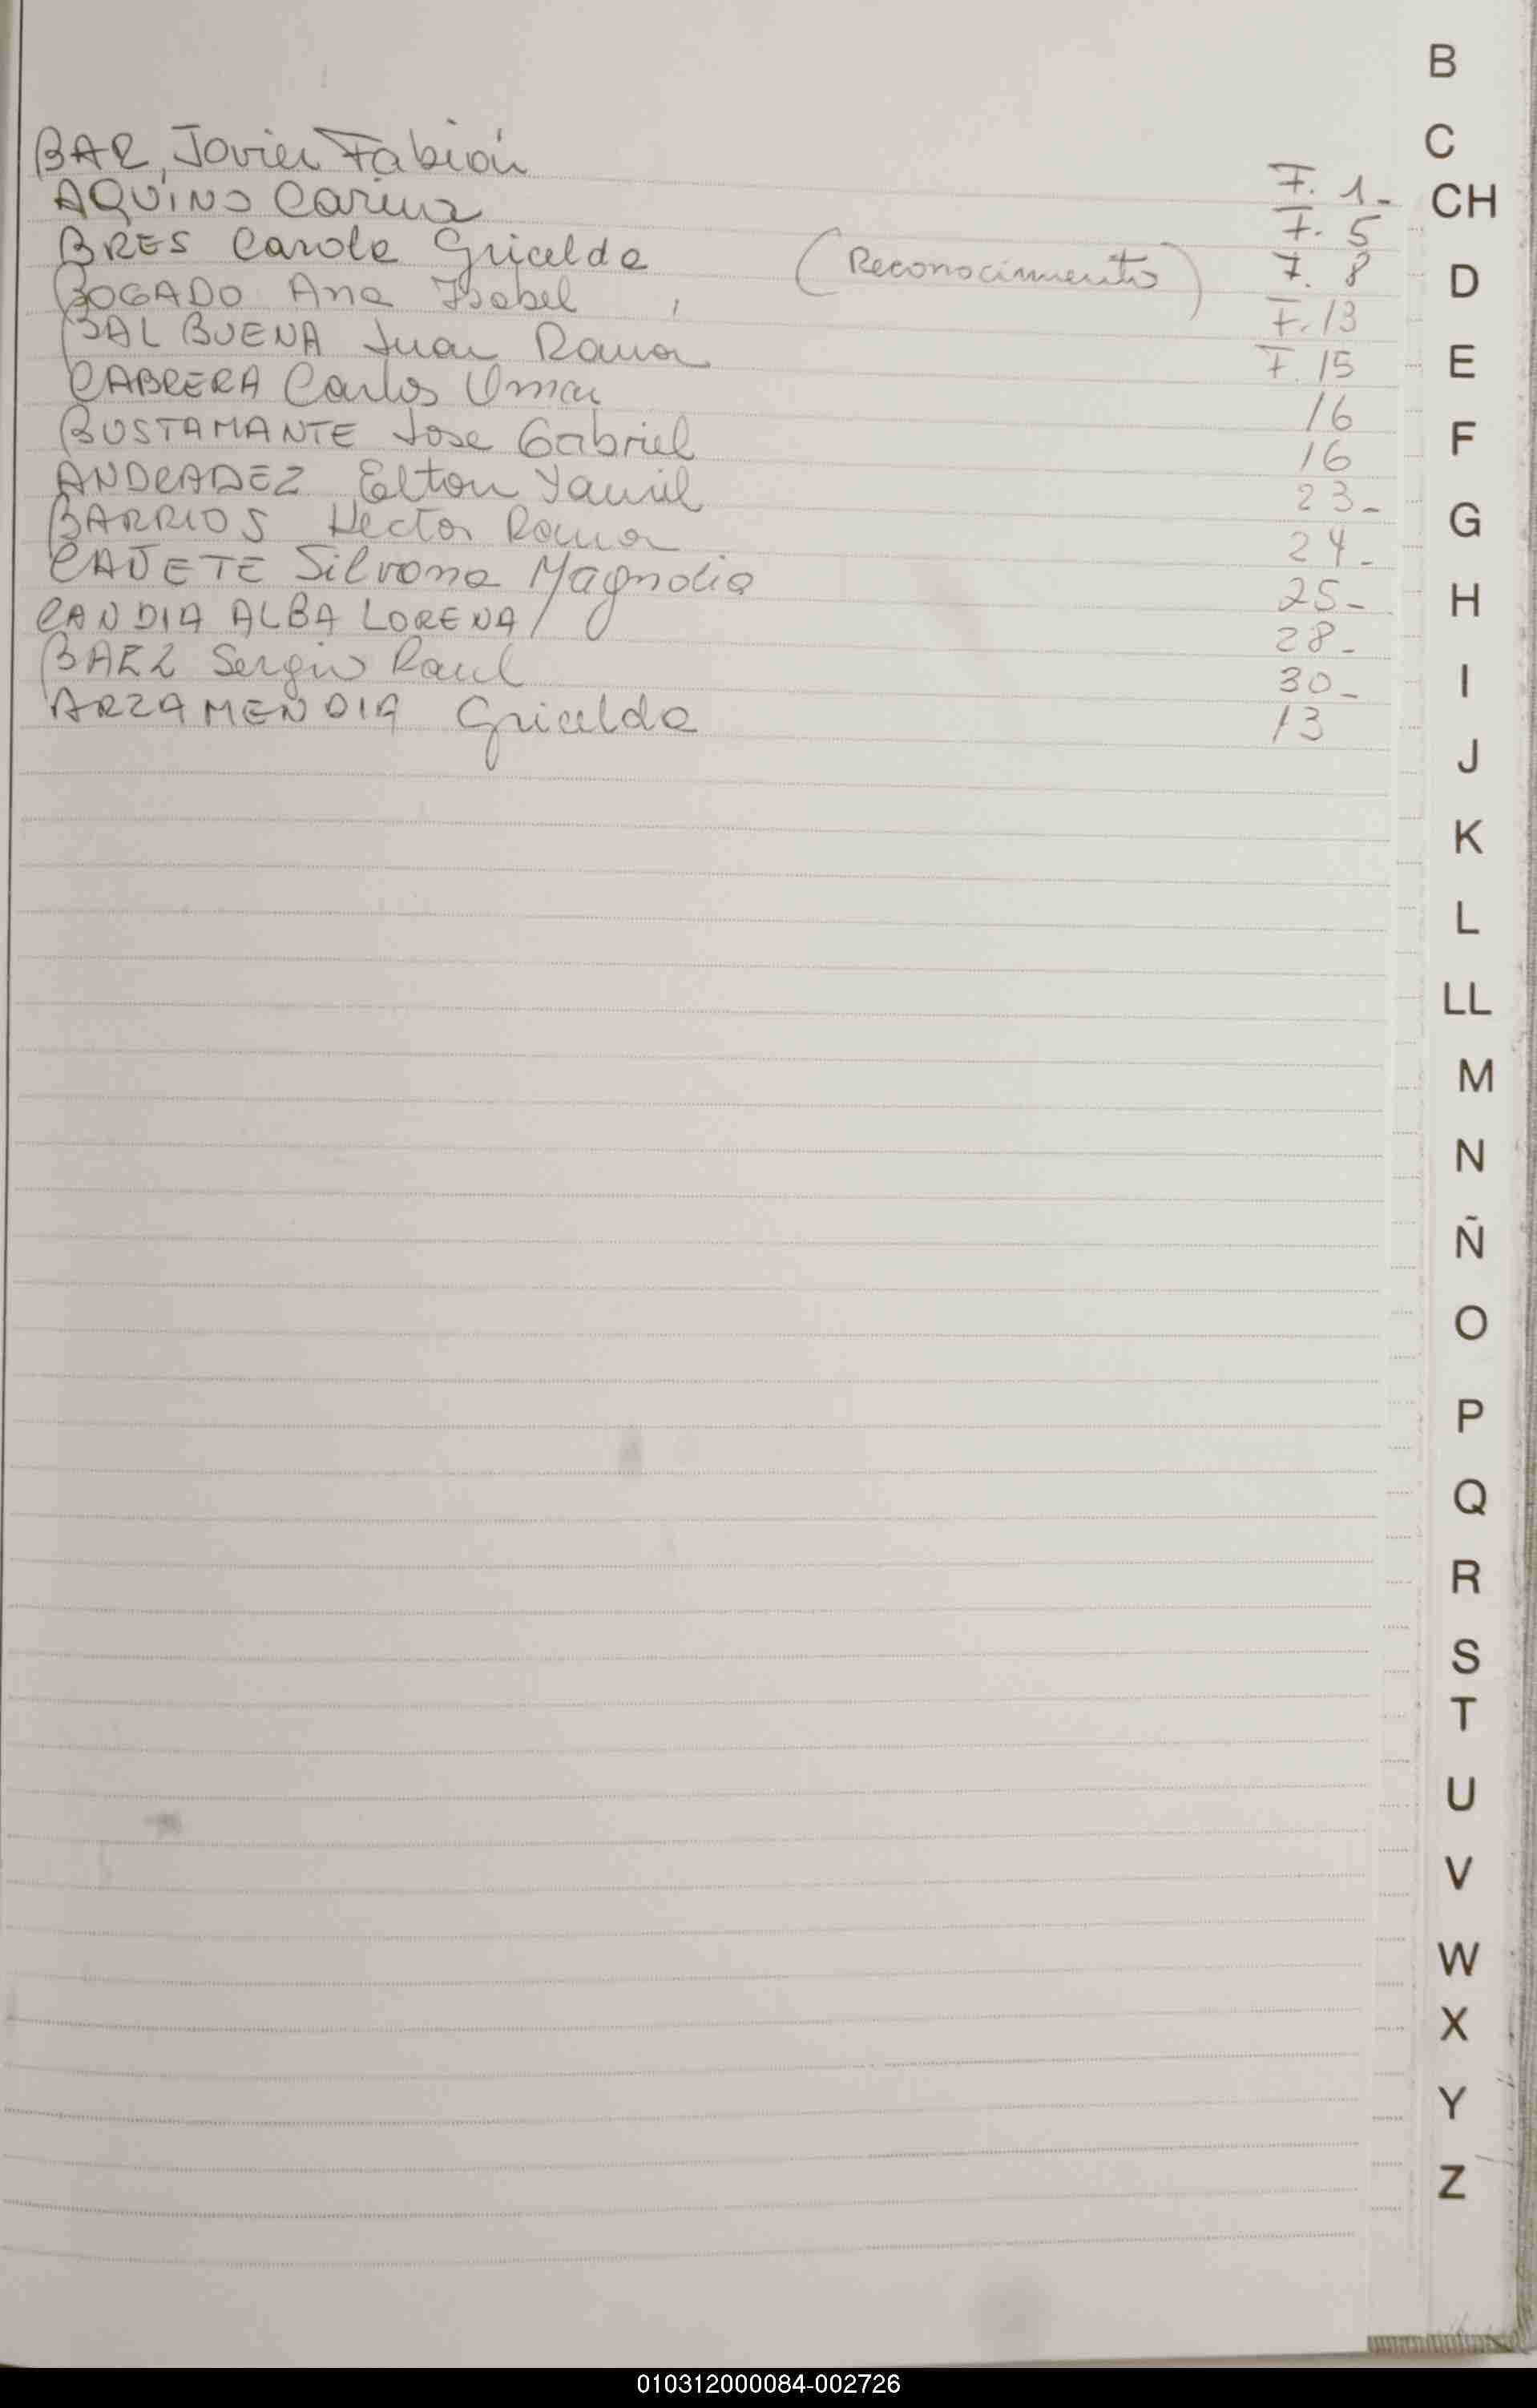 BAR, Javier Fabián F. 1-
AQUINO Carina F. 5
BRES Carola Gricelda (Reconocimiento) F. 8
BOGADO Ana Isabel F. 13
BALBUENA Juan Ramón F. 15
CABRERA Carlos Omar 16
BUSTAMANTE Jose Gabriel 16
ANDRADEZ Elton Yamil 23-
BARRIOS Hector Ramon 24-
CAÑETE Silvana Magnolia 25-
CANDIA ALBA LORENA 28-
BAEZ Sergio Raul 30-
ARZAMENDIA Gricelda 13
B
C
CH
D
E
F
G
H
I
J
K
L
LL
M
N
Ñ
O
P
Q
R
S
T
U
V
W
X
Y
Z
010312000084-002726